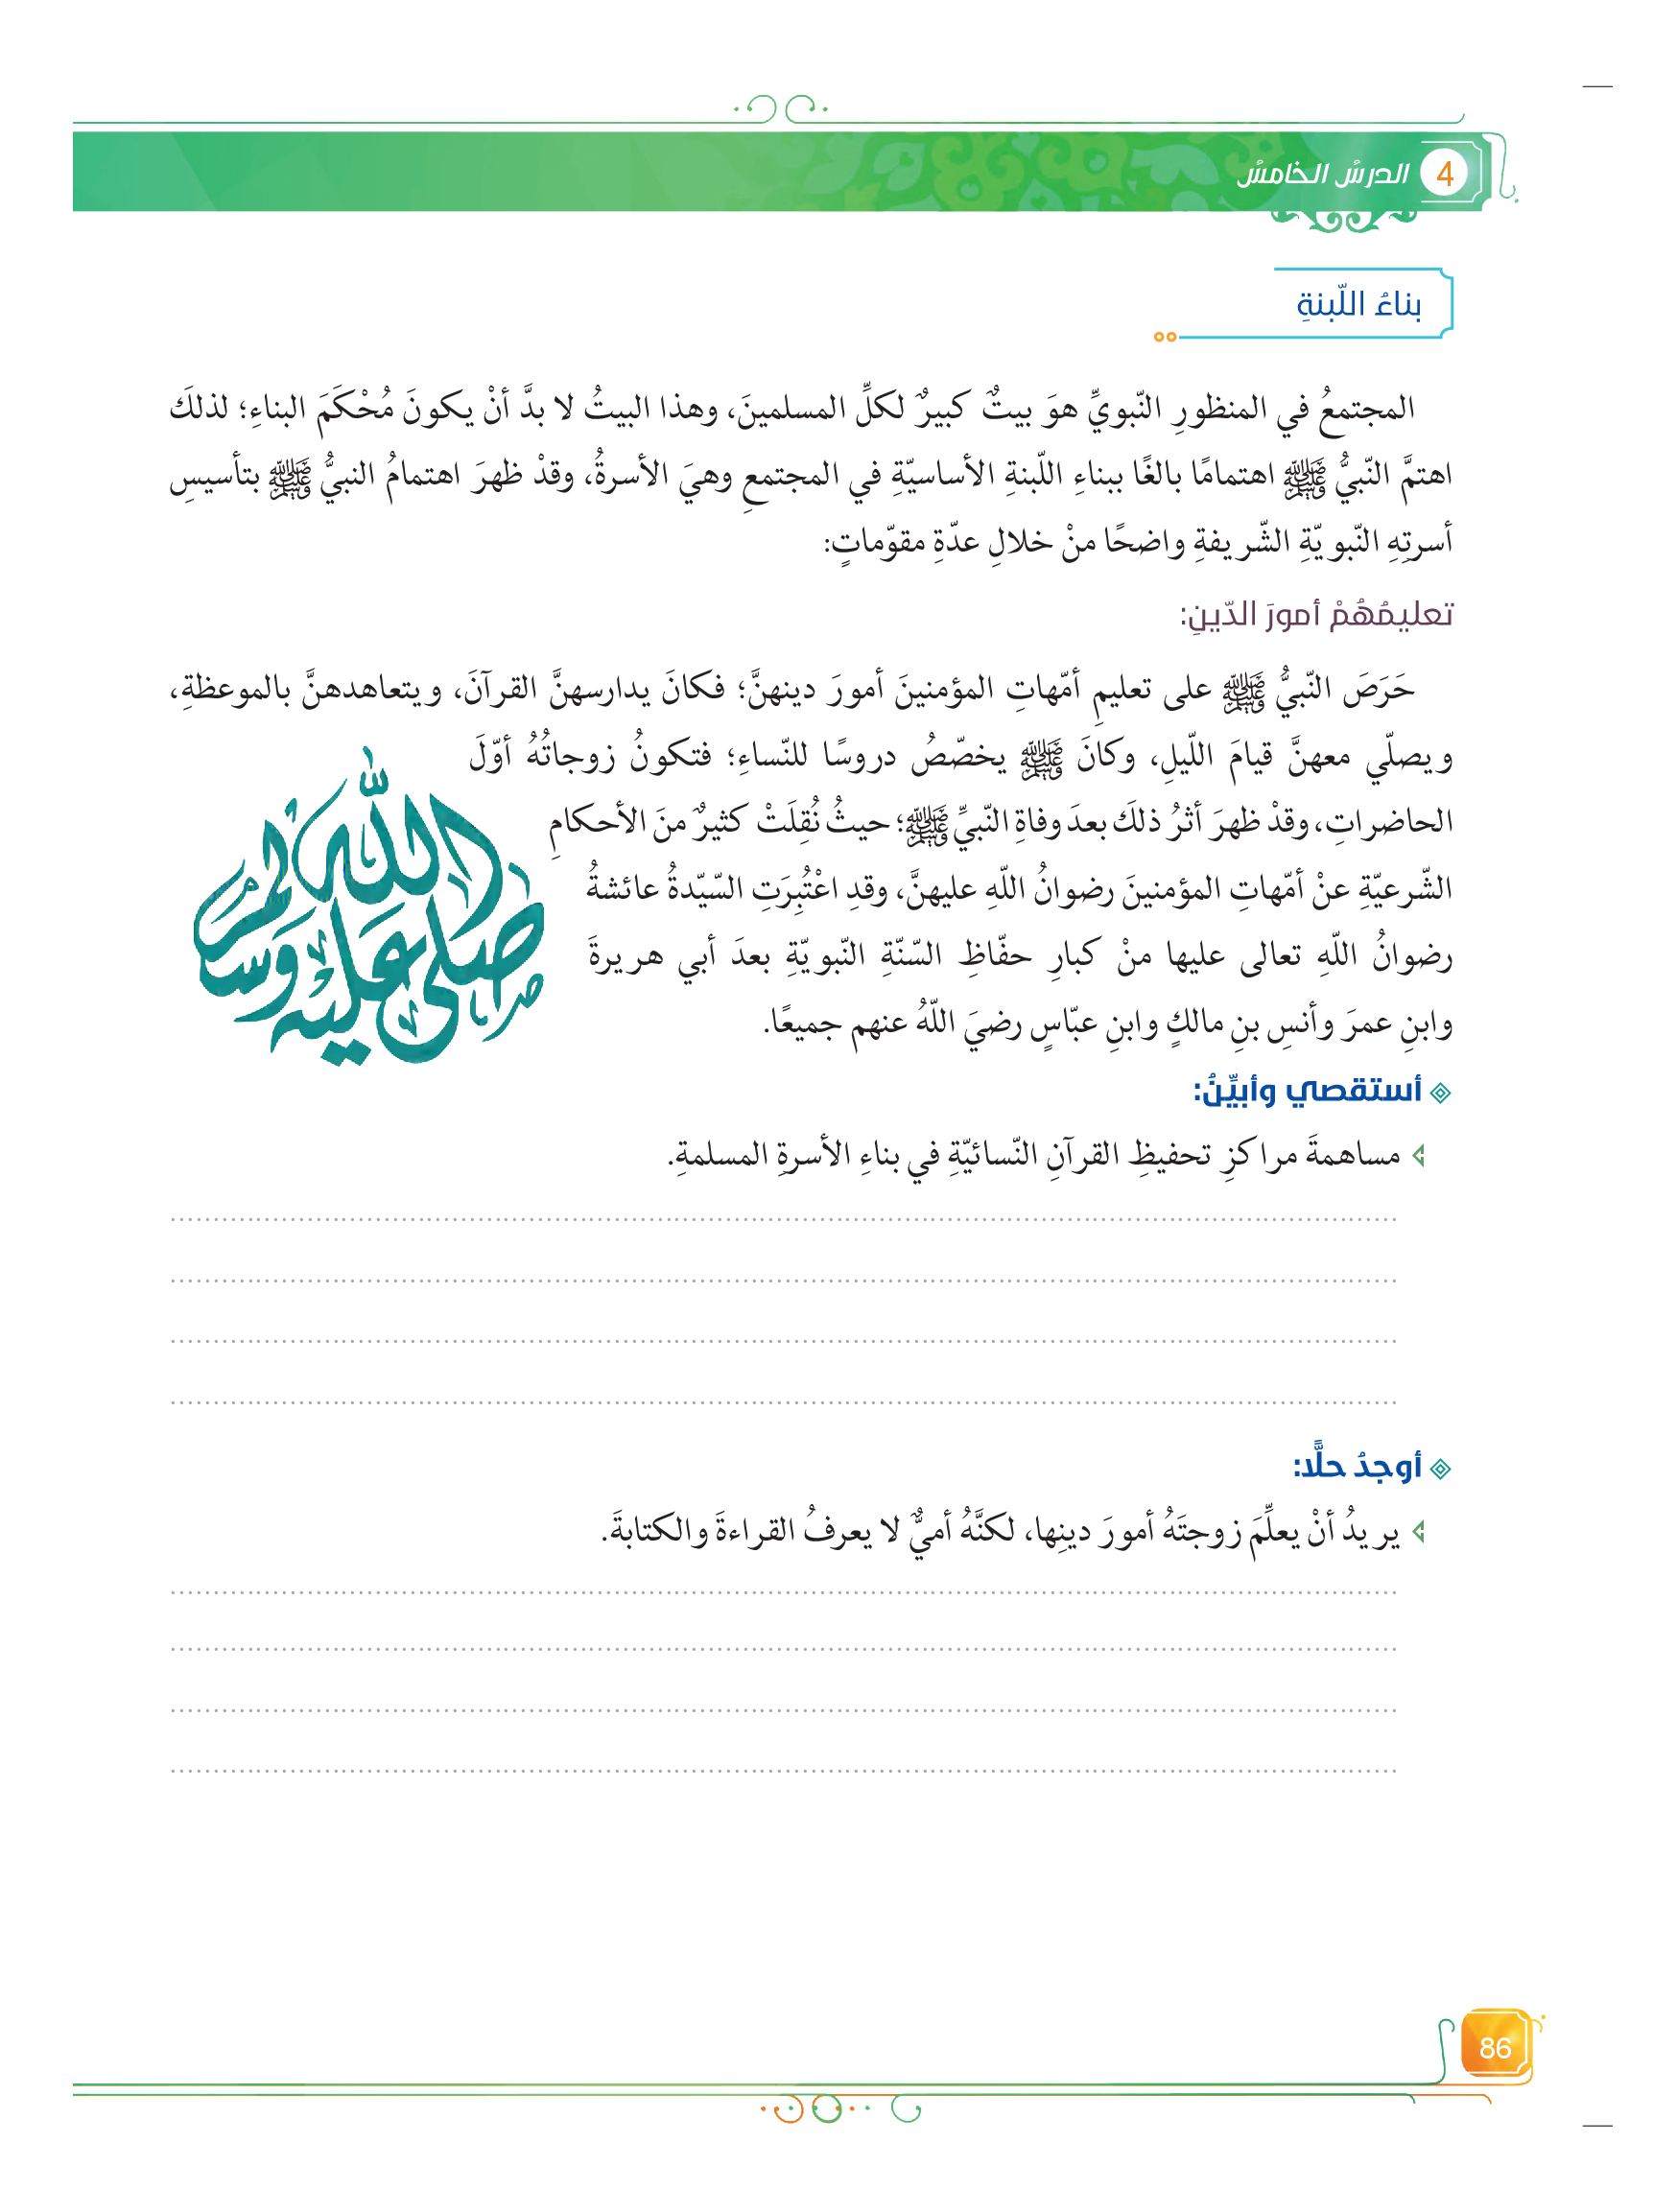 4 الدرسُ الخامسُ
بناءُ اللّبنةِ
المجتمعُ في المنظورِ النّبويِّ هوَ بيتٌ كبيرٌ لكلِّ المسلمينَ، وهذا البيتُ لا بدَّ أنْ يكونَ مُحْكَمَ البناءِ؛ لذلكَ
اهتمَّ النّبيُّ ﷺ اهتمامًا بالغًا ببناءِ اللّبنةِ الأساسيّةِ في المجتمعِ وهيَ الأسرةُ، وقدْ ظهرَ اهتمامُ النبيُّ ﷺ بتأسيسِ
أسرتِهِ النّبويّةِ الشّريفةِ واضحًا منْ خلالِ عدّةِ مقوّماتٍ:
تعليمُهُمْ أمورَ الدّينِ:
حَرَصَ النّبيُّ ﷺ على تعليمِ أمّهاتِ المؤمنينَ أمورَ دينهنَّ؛ فكانَ يدارسهنَّ القرآنَ، ويتعاهدهنَّ بالموعظةِ،
ويصلّي معهنَّ قيامَ اللّيلِ، وكانَ ﷺ يخصّصُ دروسًا للنّساءِ؛ فتكونُ زوجاتُهُ أوّلَ
الحاضراتِ، وقدْ ظهرَ أثرُ ذلكَ بعدَ وفاةِ النّبيِّ ﷺ؛ حيثُ نُقِلَتْ كثيرٌ منَ الأحكامِ
الشّرعيّةِ عنْ أمّهاتِ المؤمنينَ رضوانُ اللّهِ عليهنَّ، وقدِ اعْتُبِرَتِ السّيّدةُ عائشةُ
رضوانُ اللّهِ تعالى عليها منْ كبارِ حفّاظِ السّنّةِ النّبويّةِ بعدَ أبي هريرةَ
وابنِ عمرَ وأنسِ بنِ مالكٍ وابنِ عبّاسٍ رضيَ اللّهُ عنهم جميعًا.
صلى الله عليه وسلم
أستقصي وأبيِّنُ:
مساهمةَ مراكزِ تحفيظِ القرآنِ النّسائيّةِ في بناءِ الأسرةِ المسلمةِ.
أوجدُ حلًّا:
يريدُ أنْ يعلِّمَ زوجتَهُ أمورَ دينِها، لكنَّهُ أميٌّ لا يعرفُ القراءةَ والكتابةَ.
86